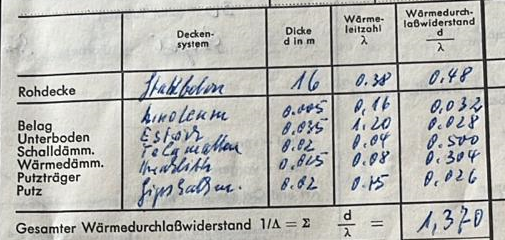 Decken- system Dicke d in m Wärme- leitzahl λ Wärmedurch- laßwiderstand d λ
Rohdecke Stahlbeton 16 0.38 0.48
Belag Linoleum 0.005 0.16 0.032
Unterboden Estrich 0.035 1.20 0.028
Schalldämm. Telamatten 0.02 0.04 0.500
Wärmedämm. 0.025 0.08 0.304
Putzträger Gipskalkm. 0.02 0.75 0.026
Putz
Gesamter Wärmedurchlaßwiderstand 1/Λ = Σ d λ = 1,370